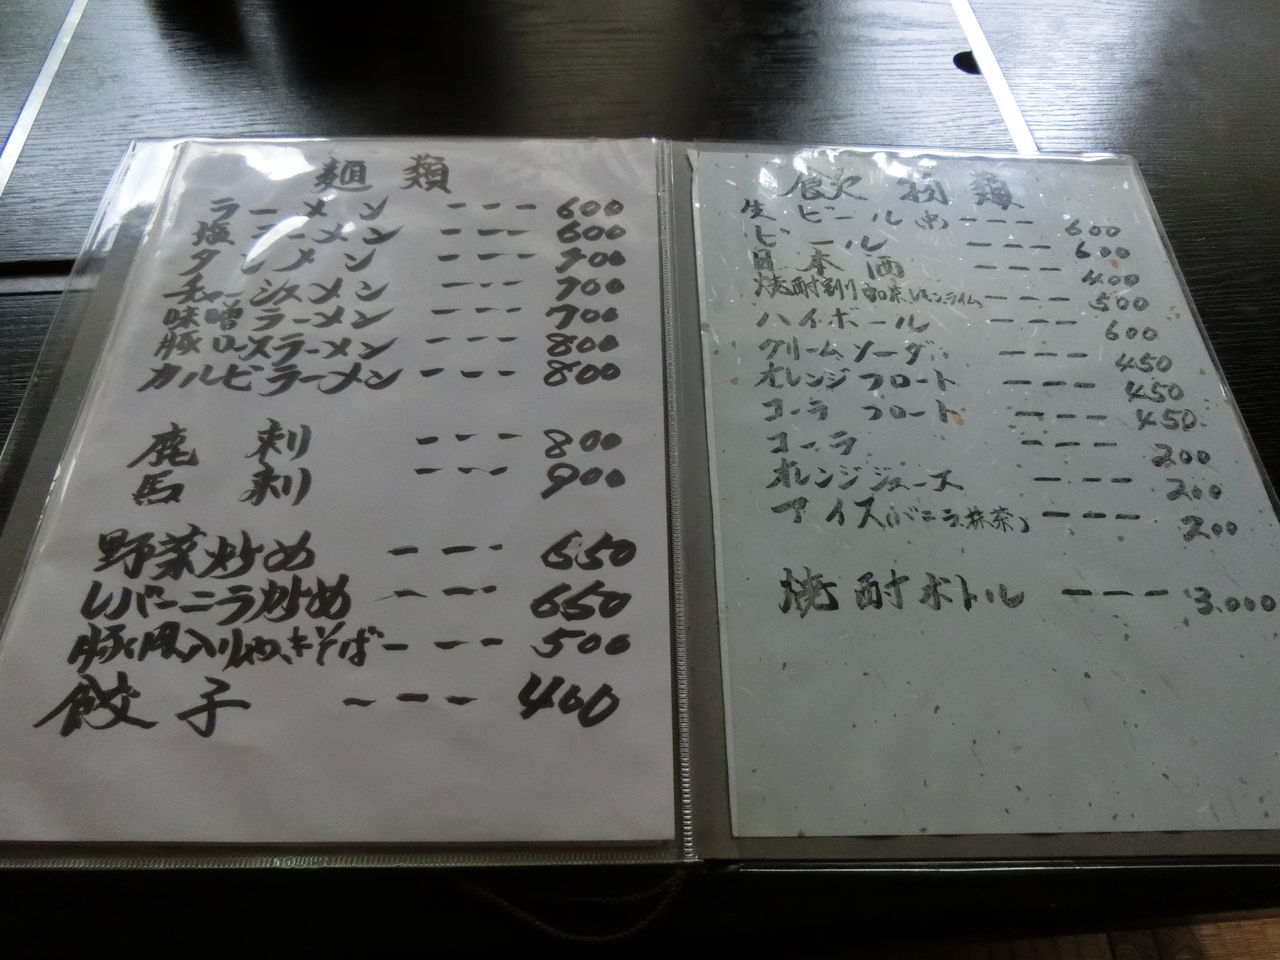 麺類
ラーメン --- 600
塩ラーメン --- 600
タンメン --- 700
チャーシューメン --- 700
味噌ラーメン --- 700
豚ロースラーメン --- 800
カルビラーメン --- 800
鹿刺 --- 800
馬刺 --- 900
野菜炒め --- 650
レバーニラ炒め --- 650
豚肉入りやきそば --- 500
餃子 --- 400
飲物類
生ビール(中) --- 600
ビール --- 600
日本酒 --- 400
焼酎割り レモン ライム --- 500
ハイボール --- 600
クリームソーダ --- 450
オレンジフロート --- 450
コーラフロート --- 450
コーラ --- 200
オレンジジュース --- 200
アイス(バニラ、抹茶) --- 200
焼酎ボトル --- 3,000